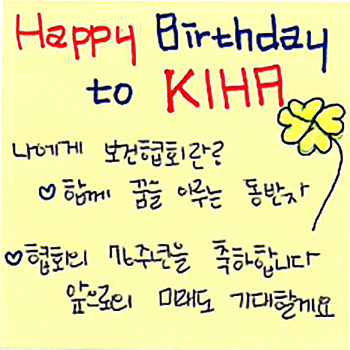 Happy Birthday
to KIHA
나에게 보건협회란?
♡ 함께 꿈을 이루는 동반자
♡ 협회의 창주년을 축하합니다
앞으로의 미래도 기대할게요